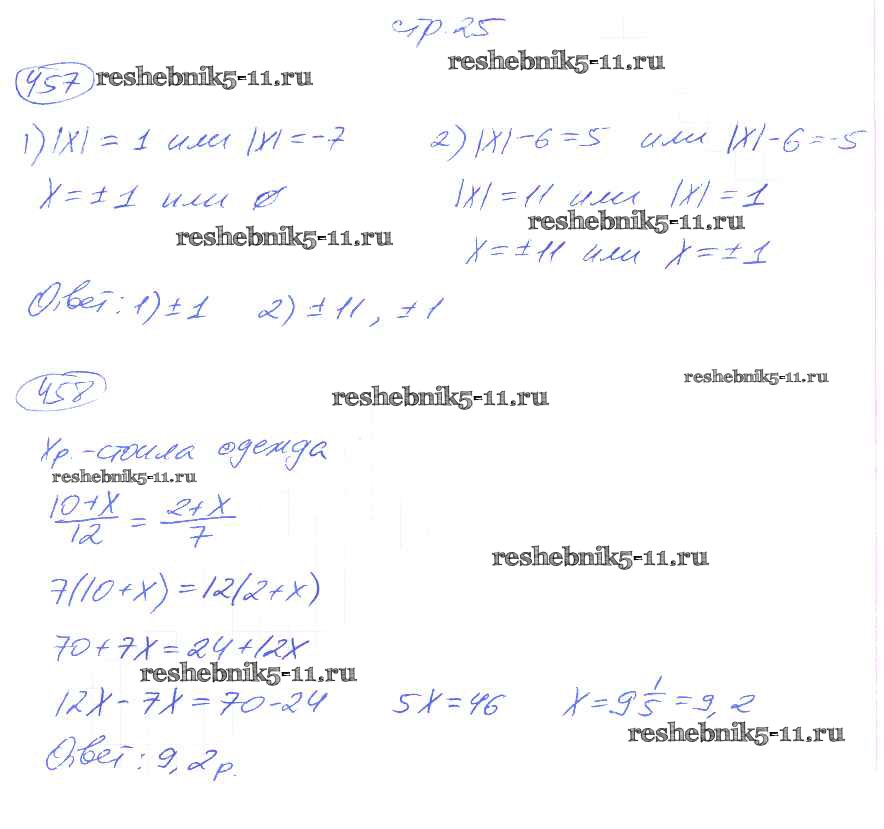 стр. 25
457 reshebnik5-11.ru reshebnik5-11.ru
1) |x| = 1 или |x| = -7 2) |x| - 6 = 5 или |x| - 6 = -5
x = ±1 или ∅ |x| = 11 или |x| = 1
reshebnik5-11.ru reshebnik5-11.ru
x = ±11 или x = ±1
Ответ: 1) ±1 2) ±11, ±1
458 reshebnik5-11.ru reshebnik5-11.ru
xр. - стоила одежда
reshebnik5-11.ru
(10+x)/12 = (2+x)/7
reshebnik5-11.ru
7(10+x) = 12(2+x)
70+7x = 24+12x
reshebnik5-11.ru
12x - 7x = 70 - 24 5x = 46 x = 9 1/5 = 9,2
reshebnik5-11.ru
Ответ: 9,2 р.